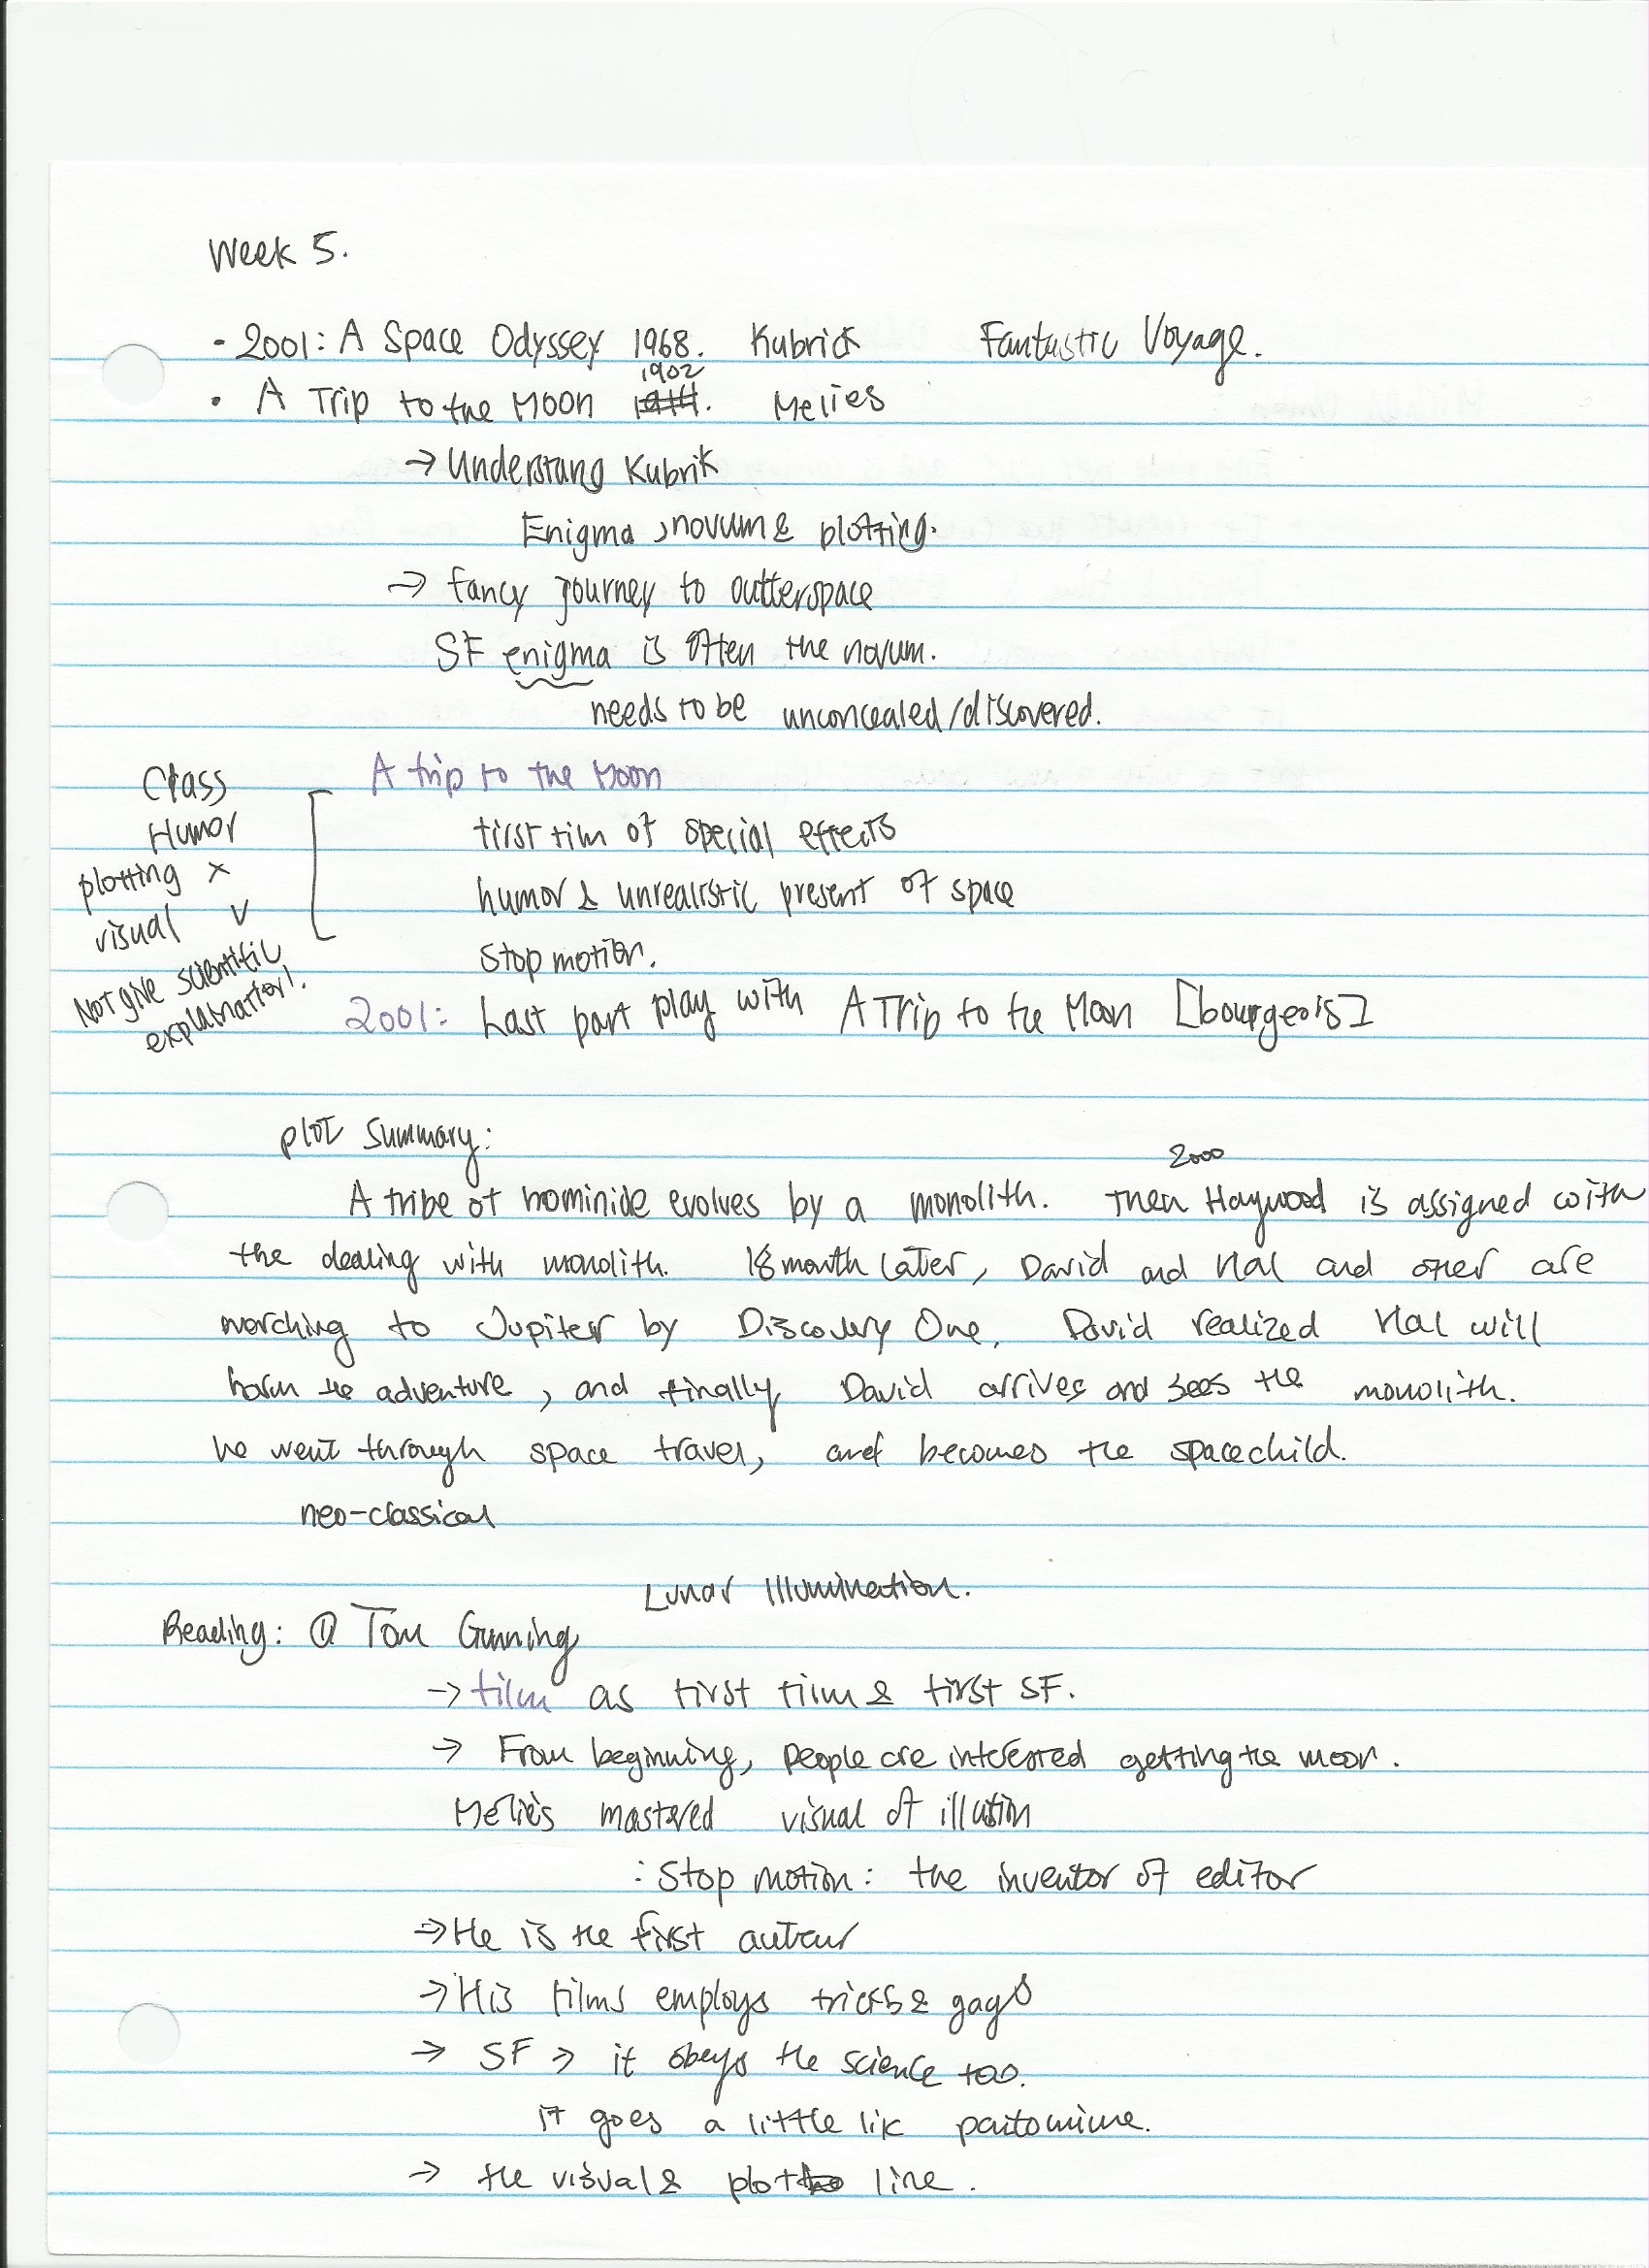 Week 5.
- 2001: A Space Odyssey 1968. Kubrick Fantastic Voyage.
1902
• A Trip to the Moon 1914. Melies
→ Understang Kubrik
Enigma, novum & plotting.
→ fancy journey to outterspace
SF enigma is often the novum.
needs to be unconcealed/discovered.
A trip to the Moon
Class
first film of special effects
Humor
humor & unrealistic present of space
plotting ×
visual v
Stop motion.
Not give scientific explaination!
2001: Last part play with A Trip to the Moon [bourgeois]
plot summary:
2000
A tribe of hominide evolves by a monolith. Then Haywood is assigned with
the dealing with monolith. 18 month later, David and Hal and other are
marching to Jupiter by Discovery One. David realized Hal will
harm the adventure, and finally David arrives and sees the monolith.
he went through space travel, and becomes the spacechild.
neo-classical
Lunar Illumination.
Reading: ① Tom Gunning
→ film as first film & first SF.
→ From beginning, people are interested getting the moon.
Melie's mastered visual of illusion
: Stop motion: the inventor of editor
→ He is the first auteur
→ His films employs tricks & gags
→ SF → it obeys the science too.
it goes a little lik pantomime.
→ the visual & plot line.